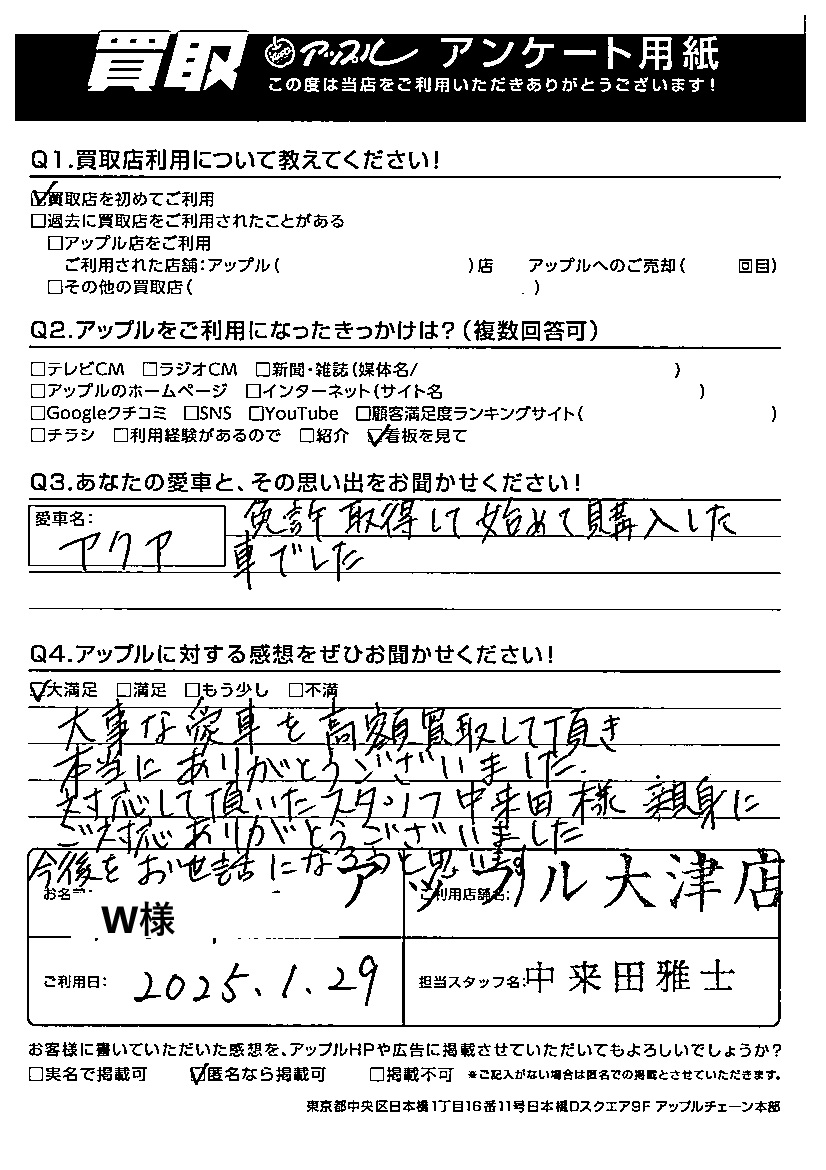 買取 アップル アンケート用紙
この度は当店をご利用いただきありがとうございます!
Q1.買取店利用について教えてください!
☑買取店を初めてご利用
□過去に買取店をご利用されたことがある
□アップル店をご利用
ご利用された店舗:アップル( )店 アップルへのご売却( 回目)
□その他の買取店( )
Q2.アップルをご利用になったきっかけは?(複数回答可)
□テレビCM □ラジオCM □新聞・雑誌(媒体名/ )
□アップルのホームページ □インターネット(サイト名 )
□Googleクチコミ □SNS □YouTube □顧客満足度ランキングサイト( )
□チラシ □利用経験があるので □紹介 ☑看板を見て
Q3.あなたの愛車と、その思い出をお聞かせください!
愛車名:
アクア
免許取得して始めて購入した
車でした
Q4.アップルに対する感想をぜひお聞かせください!
☑大満足 □満足 □もう少し □不満
大事な愛車を高額買取して頂き
本当にありがとうございました.
対応して頂いたスタッフ中来田様 親身に
ご対応ありがとうございました
今後もお世話になろうと思います
お名 W様
ご利用店舗名: アップル大津店
ご利用日: 2025.1.29
担当スタッフ名:中来田雅士
お客様に書いていただいた感想を、アップルHPや広告に掲載させていただいてもよろしいでしょうか?
□実名で掲載可 ☑匿名なら掲載可 □掲載不可 ※ご記入がない場合は匿名での掲載とさせていただきます。
東京都中央区日本橋1丁目16番11号日本橋Dスクエア9F アップルチェーン本部